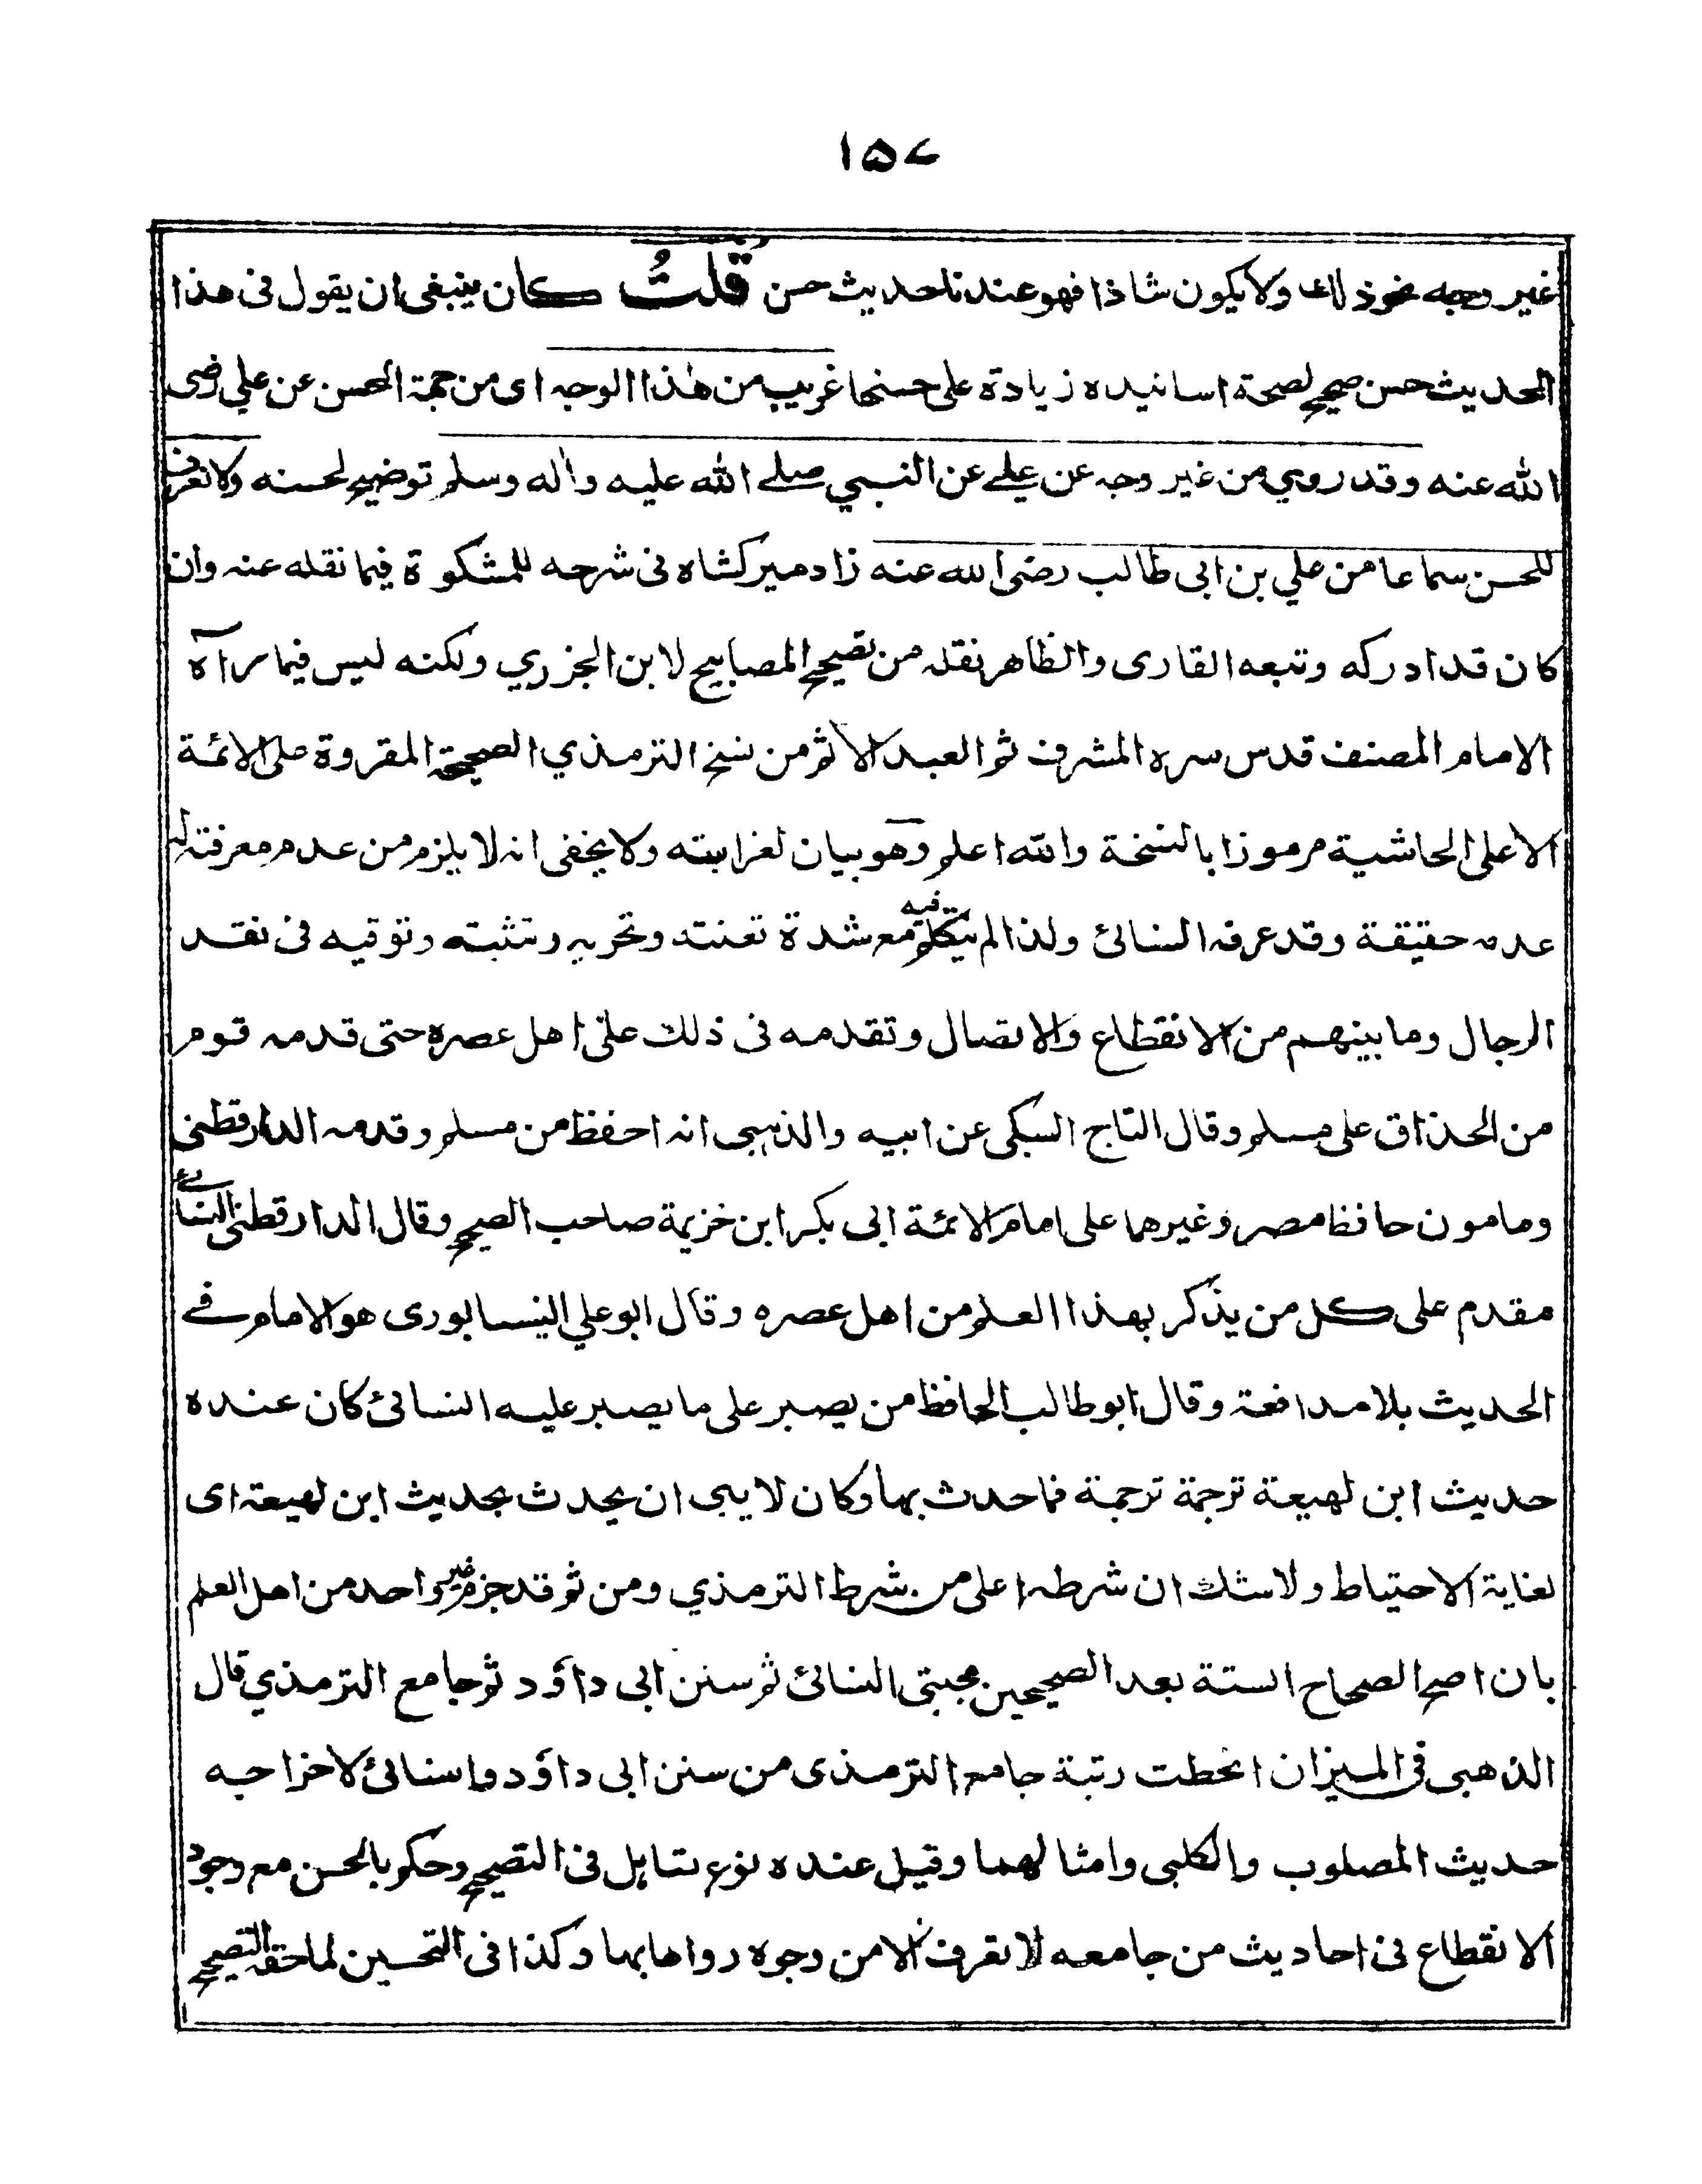 ١٥٧
غير وجه نحو ذلك ولا يكون شاذا فهو عندنا حديث حسن قلتُ كان ينبغى ان يقول فى هذا
الحديث حسن صحيح لصحة اسانيده زيادة على حسنها غريب من هذا الوجه اى من جهة الحسن عن علي رضى
الله عنه وقد روي من غير وجه عن علي عن النبي صلے الله عليه واٰله وسلم توضيح لحسنه ولا نعرف
للحسن سماعا من علي بن ابى طالب رضى الله عنه زاد ميركشاه فى شرحه للمشكوة فيما نقله عنه وان
كان قد ادركه وتبعه القارى والظاهر نقله من تصحيح المصابيح لابن الجزري ولكنه ليس فيما راٰه
الامام المصنف قدس سره المشرف ثم العبد الاثم من نسخ الترمذي الصحيحة المقروة على الائمة
الا على الحاشية مرموزا بالنسخة والله اعلم وهو بيان لغرابته ولا يخفى انه لا يلزم من عدم معرفته له
عدمه حقيقة وقد عرفه النسائ ولذا لم يتكلم فيه مع شدة تعنته وتحريه وتثبته وتوقيه فى نقد
الرجال وما بينهم من الانقطاع والاتصال وتقدمه فى ذلك على اهل عصره حتى قدمه قوم
من الحذاق على مسلم وقال التاج السبكى عن ابيه والذهبى انه احفظ من مسلم وقدمه الدارقطنى
ومامون حافظ مصر وغيرهما على امام الائمة ابى بكر ابن خزيمة صاحب الصحيح وقال الدارقطنى النسائے
مقدم على كل من يذكر بهذا العلم من اهل عصره وقال ابو علي النيسابورى هو الامام فے
الحديث بلا مدافعة وقال ابو طالب الحافظ من يصبر على ما يصبر عليه النسائ كان عنده
حديث ابن لهيعة ترجمة ترجمة فما حدث بها وكان لا يرى ان يحدث بحديث ابن لهيعة اى
لغاية الاحتياط ولا شك ان شرطه اعلى من شرط الترمذي ومن ثم قد جزم غير واحد من اهل العلم
بان اصح الصحاح الستة بعد الصحيحين مجتبى النسائ ثم سنن ابى داؤد ثم جامع الترمذي قال
الذهبى فى الميزان انحطت رتبة جامع الترمذى من سنن ابى داؤد والنسائ لاخراجه
حديث المصلوب والكلبى وامثالهما وقيل عنده نوع تساهل فى التصحيح وحكم بالحسن مع وجود
الانقطاع فى احاديث من جامعه لا تعرف الا من وجوه رواها بها وكذا فى التحسين لما حقه التصحيح